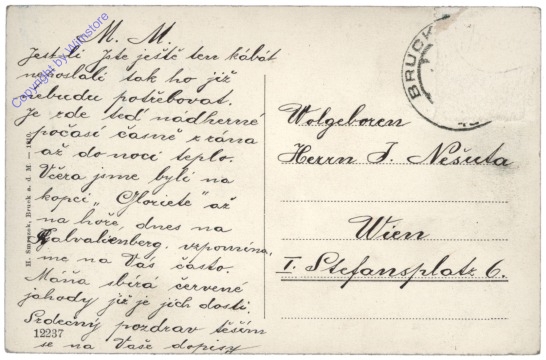 M. M.
Jestli Jste ještě ten kabát
neposlali tak ho již
nebudu potřebovat.
Je zde teď nádherné
počasí časně z rána
až do noci teplo.
Včera jsme byli na
kopci „Gloriete" až
na hoře, dnes na
Kalvalienberg. vzpomíná
me na Vás často.
Máňa sbírá červené
jahody již je jich dosti.
Srdečný pozdrav těším
se na Vaše dopisy
Wolgeboren
Herrn J. Nešuta
Wien
I. Stefansplatz 6.
BRUCK
12237
Bruck a. d. M. — 1910
Copyright by Wihnstore